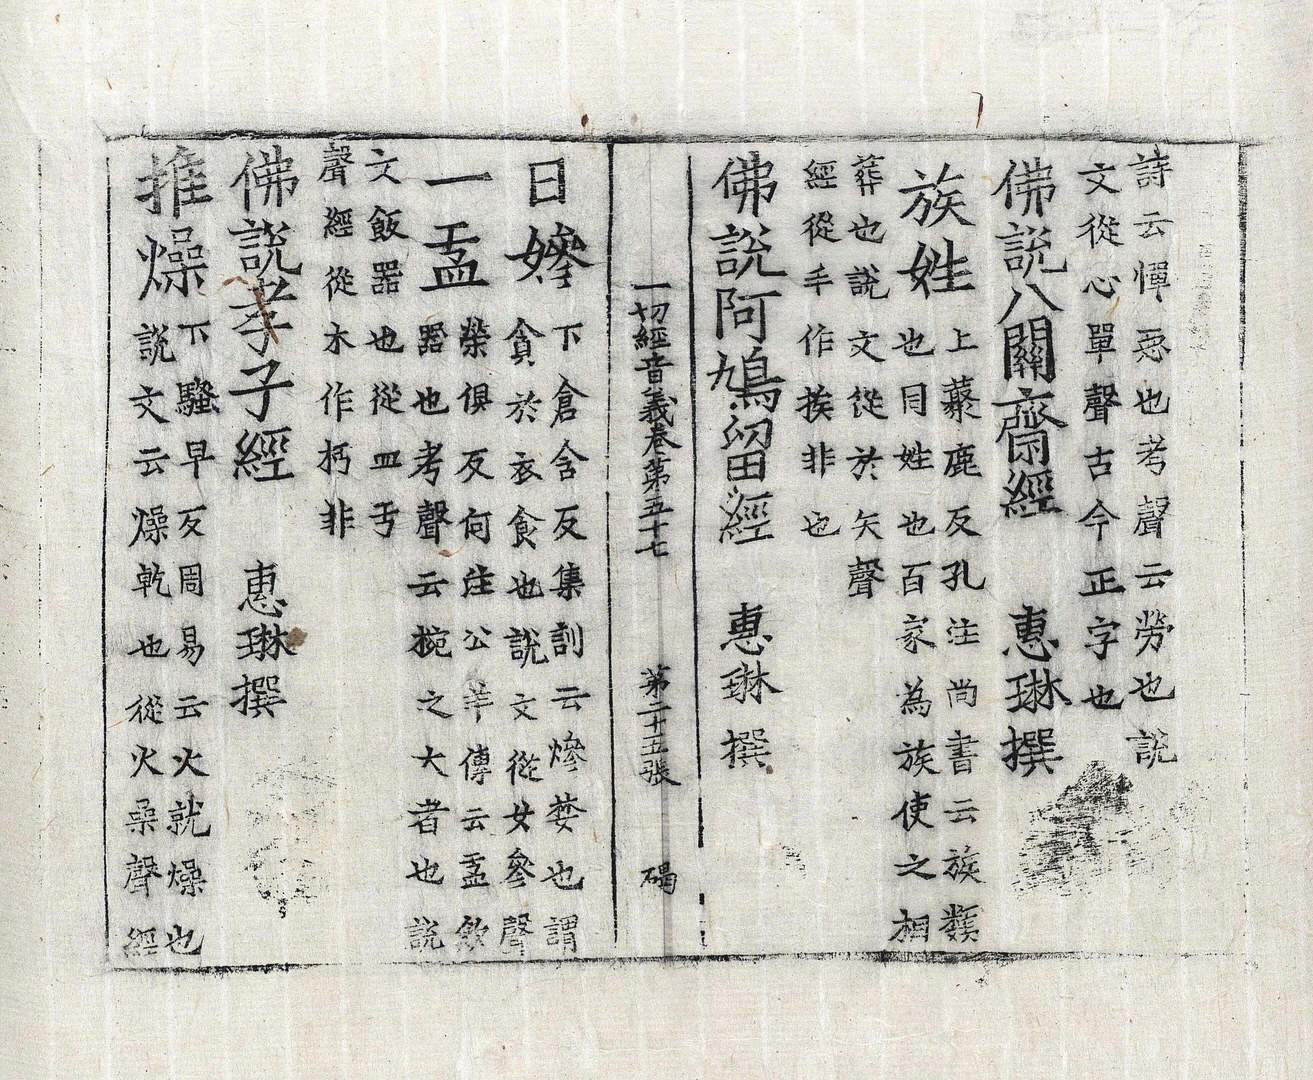 詩云憚惡也考聲云勞也說
文從心單聲古今正字也
佛說八關齋經 惠琳撰
族姓 上藂鹿反孔注尚書云族類
也同姓也百家為族使之相
葬也說文從㫃矢聲
經從手作挨非也
佛說阿鳩留經 惠琳撰
一切經音義卷第五十七 第二十五張 碣
日㜗 下倉含反集訓云㜗婪也謂
貪於衣食也說文從女參聲
一盂 榮俱反何注公羊傳云盂飲
器也考聲云椀之大者也說
文飯器也從皿亐
聲經從木作杇非
佛說孝子經 惠琳撰
推燥 下騷早反周易云火就燥也
說文云燥乾也從火喿聲經